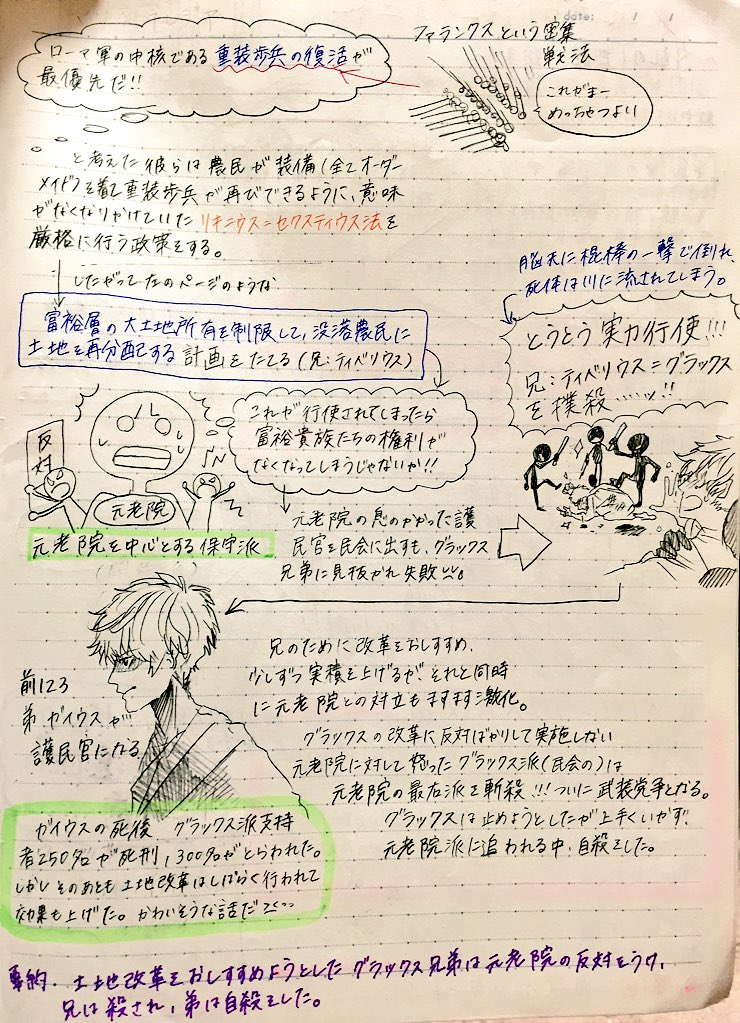 date: / /
ローマ軍の中核である重装歩兵の復活が
最優先だ!!
ファランクスという密集
戦法
これがまー
めっちゃつよい
と考えた彼らは農民が装備(全てオーダー
メイド)を着て重装歩兵が再びできるように、意味
がなくなりかけていたリキニウス=セクスティウス法を
厳格に行う政策をする。
したがって一たのページのような
富裕層の大土地所有を制限して、没落農民に
土地を再分配する計画をたてる(兄:ティベリウス)
脳天に棍棒の一撃で倒れ、
死体は川に流されてしまう。
とうとう実力行使!!!
兄:ティベリウス=グラックス
を撲殺……ッ!!
これが行使されてしまったら
富裕貴族たちの権利が
なくなってしまうじゃないか!!
反対
元老院
元老院を中心とする保守派
元老院の息のかかった護
民官を民会に出すも、グラックス
兄弟に見抜かれ失敗。
前123
弟ガイウスが
護民官になる
兄のために改革をおしすすめ、
少しずつ実積を上げるが、それと同時
に元老院との対立もますます激化。
グラックスの改革に反対ばかりして実施しない
元老院に対して怒ったグラックス派(民会の)は
元老院の最右派を斬殺!!!ついに武装党争となる。
グラックスは止めようとしたが上手くいかず、
元老院派に追われる中、自殺をした。
ガイウスの死後 グラックス派支持
者250名が死刑、300名がとらわれた。
しかしそのあとも土地改革はしばらく行われて
効果も上げた。かわいそうな話だ
要約. 土地改革をおしすすめようとしたグラックス兄弟は元老院の反対をうけ、
兄は殺され、弟は自殺をした。